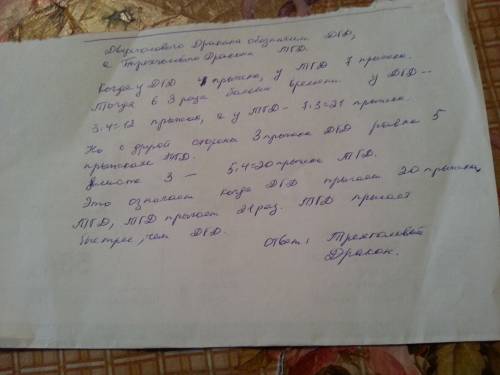 Двухголового Дракона обозначим ДГД,
а Трехголового Дракона ТГД.
Когда у ДГД 4 прыжка, у ТГД 7 прыжка.
Тогда в 3 раза больше времени у ДГД —
3·4=12 прыжка, а у ТГД — 7·3=21 прыжка.
Но с другой стороны 3 прыжка ДГД равна 5
прыжкам ТГД.
вместо 3 — 5·4=20 прыжка ТГД.
Это означает когда ДГД прыгает 20 прыжка
ТГД, ТГД прыгает 21 раз. ТГД прыгает
быстрее, чем ДГД.
Ответ: Трехголовый
Дракон.